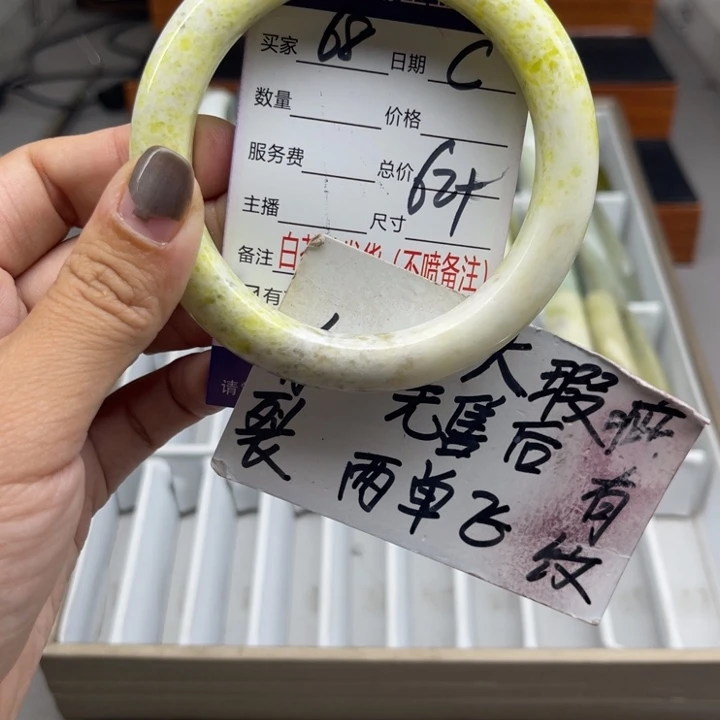 买家 68 日期 C
数量 价格
服务费 总价 62+
主播 尺寸
备注 白 发货（不喷备注）
有
请
大瑕疵 有纹
裂 无售后
两单飞